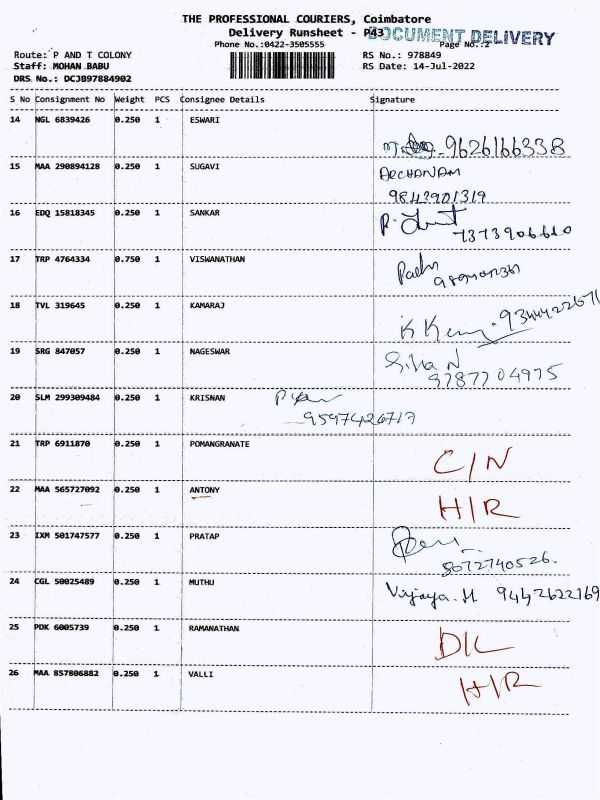 THE PROFESSIONAL COURIERS, Coimbatore
Delivery Runsheet - P43 DOCUMENT DELIVERY
Phone No.:0422-3505555 Page No.:2
Route: P AND T COLONY RS No.: 978849
Staff: MOHAN BABU RS Date: 14-Jul-2022
DRS No.: DCJB97884902
S No Consignment No Weight PCS Consignee Details Signature
14 NGL 6839426 0.250 1 ESWARI
9626166338
15 MAA 290894128 0.250 1 SUGAVI
9843901319
16 EDQ 15818345 0.250 1 SANKAR
7373906610
17 TRP 4764334 0.750 1 VISWANATHAN
18 TVL 319645 0.250 1 KAMARAJ
19 SRG 847057 0.250 1 NAGESWAR
Siva N
9787704975
20 SLM 299309484 0.250 1 KRISNAN
9597426717
21 TRP 6911870 0.250 1 POMANGRANATE
C/N
22 MAA 565727092 0.250 1 ANTONY
H/R
23 IXM 501747577 0.250 1 PRATAP
8072740526.
24 CGL 50025489 0.250 1 MUTHU
Vijaya. M 9442622169
25 PDK 6005739 0.250 1 RAMANATHAN
D/L
26 MAA 857806882 0.250 1 VALLI
H/R